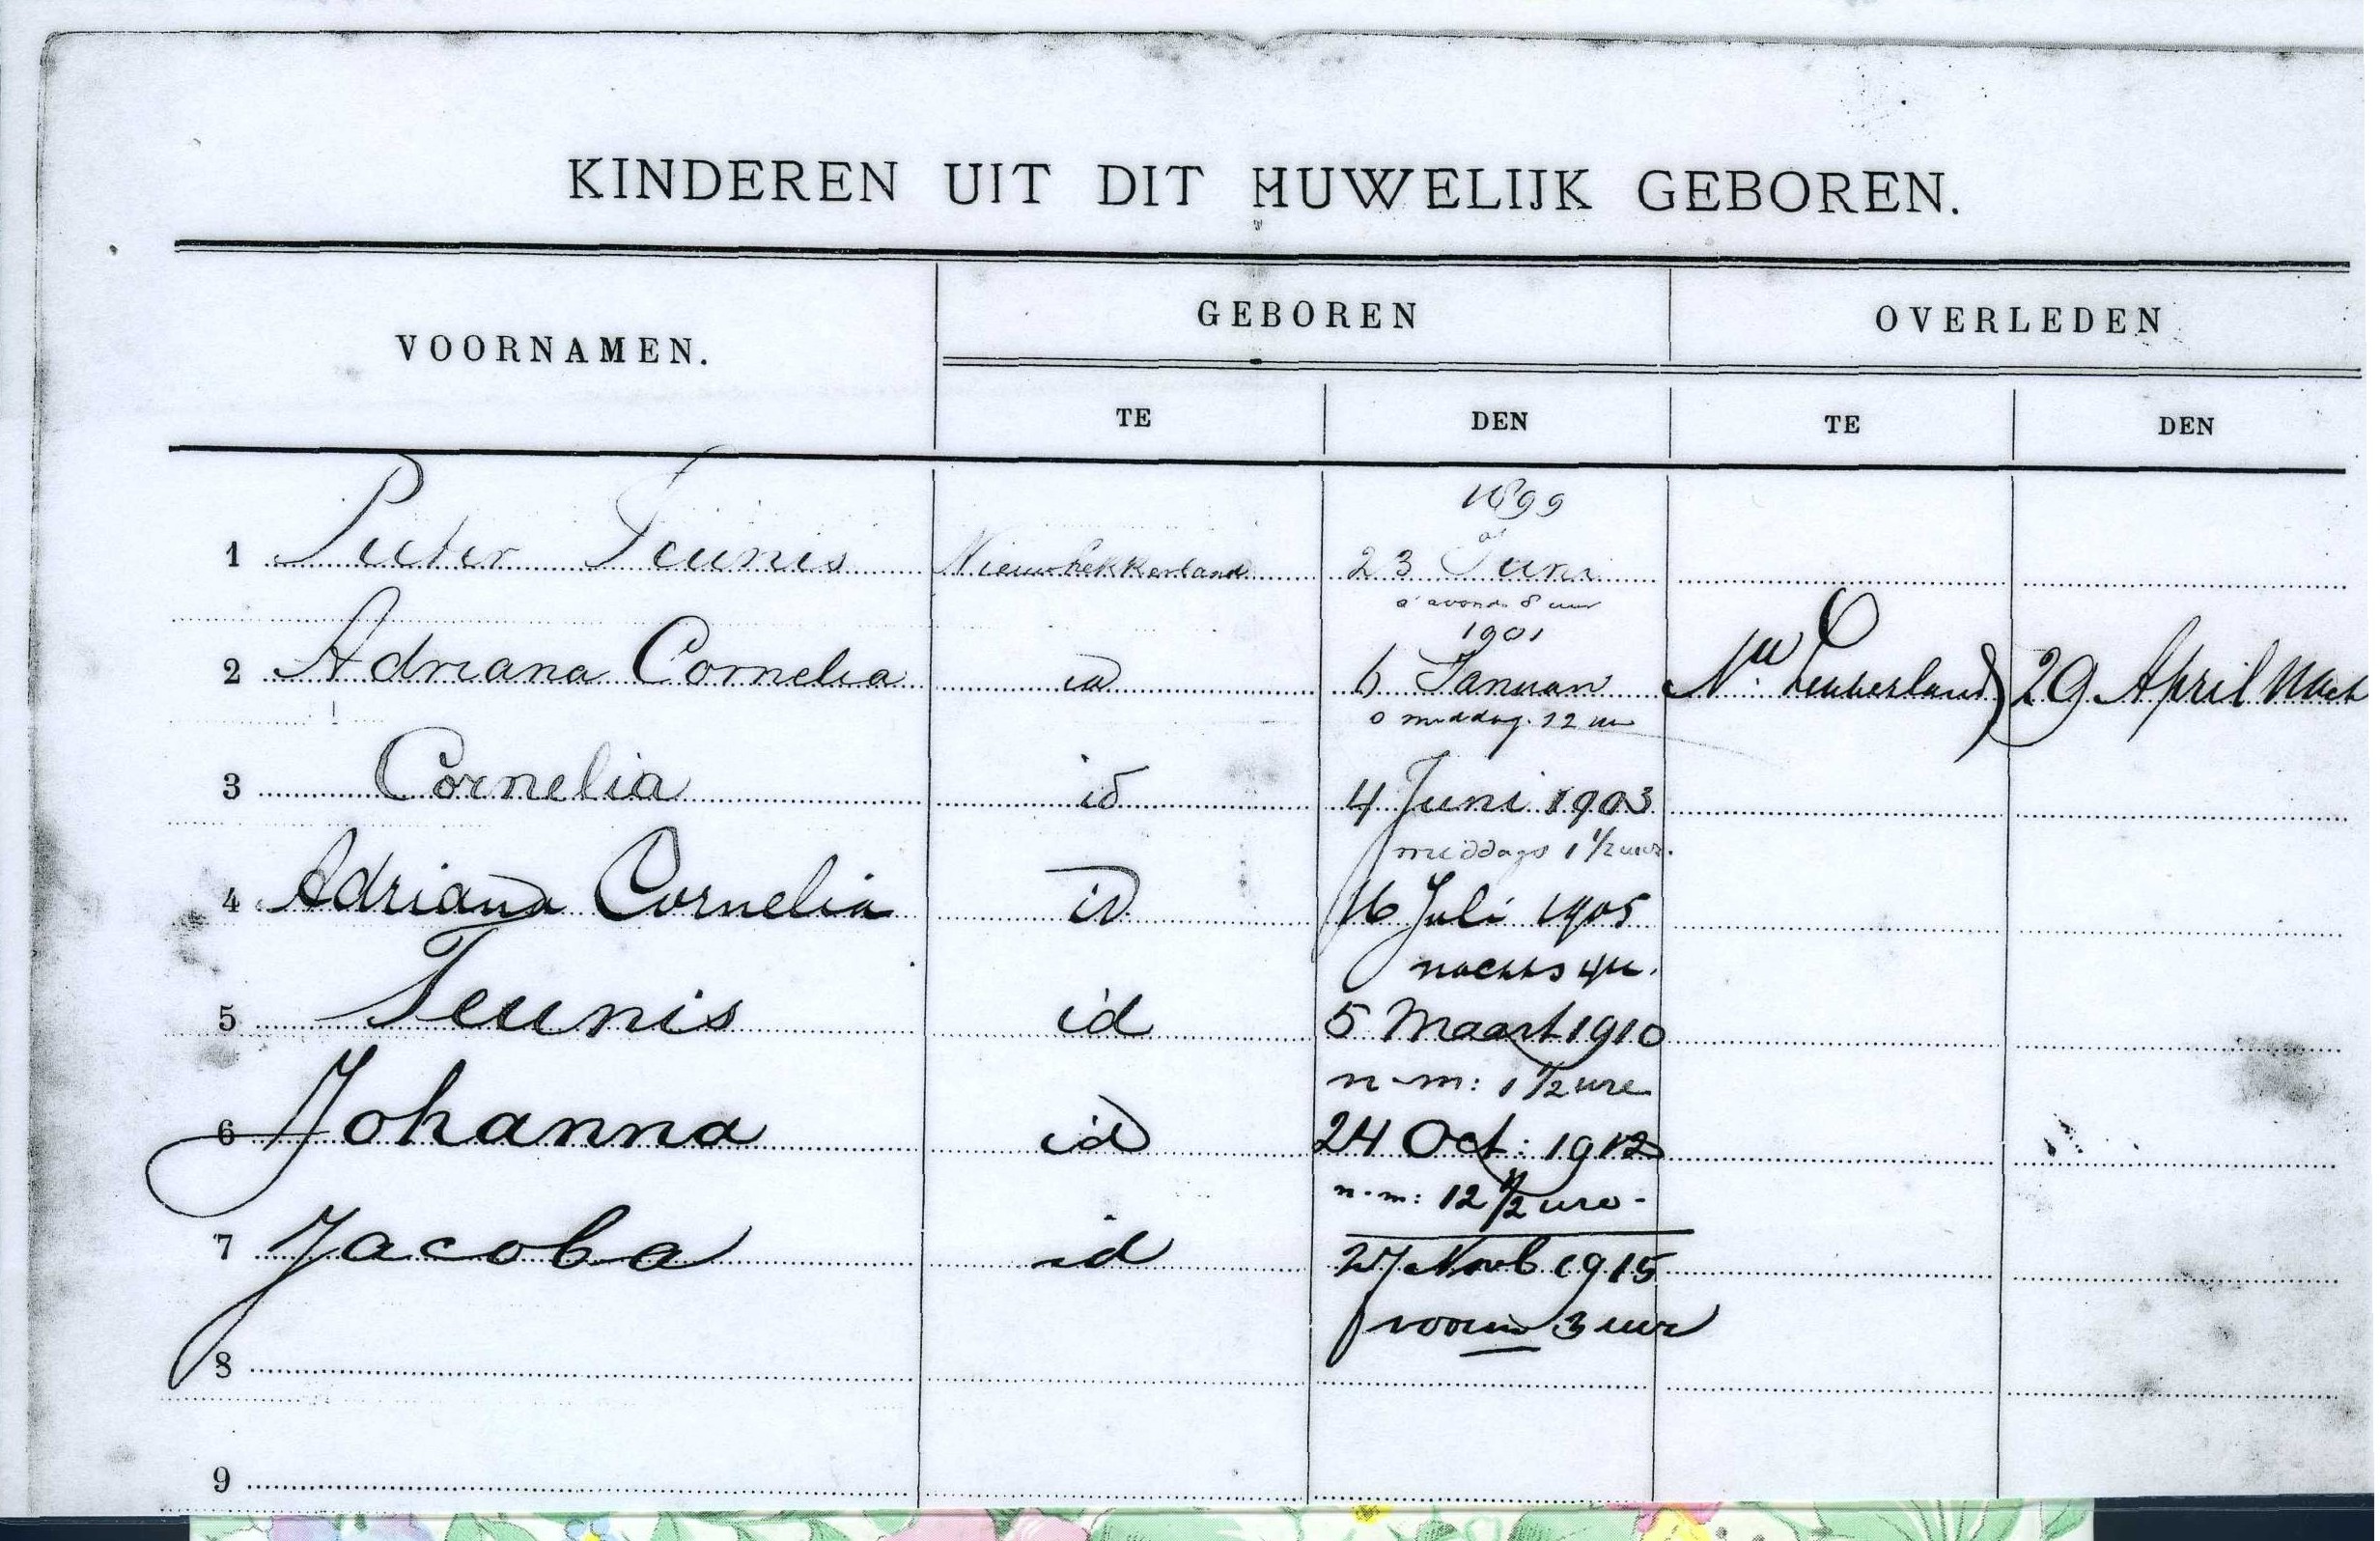 KINDEREN UIT DIT HUWELIJK GEBOREN.
VOORNAMEN. GEBOREN OVERLEDEN
TE DEN TE DEN
1899
1 Pieter Teunis Nieuwlekkerland 23 Juni
s avonds 8 uur
1901
2 Adriana Cornelia id 6 Januari Nw Lekkerland 29 April
s middag 12 uur
3 Cornelia id 4 Juni 1903
middags 1 1/2 uur.
4 Adriana Cornelia id 16 Juli 1905
nachts 4 u.
5 Teunis id 5 Maart 1910
n-m: 1 1/2 ure
6 Johanna id 24 Oct: 1912
n-m: 12 1/2 ure-
7 Jacoba id 27 Novb 1915
3 uur
8
9